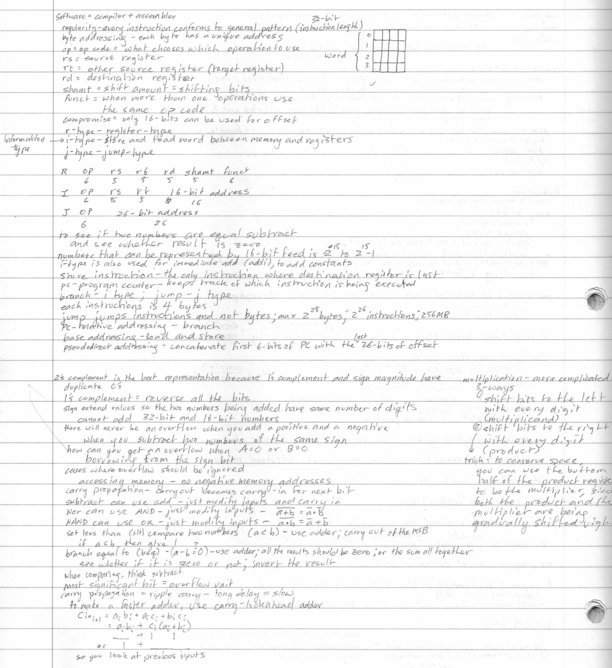 software = compiler + assembler
32-bit
regularity - every instruction conforms to general pattern (instruction length)
byte addressing - each byte has a unique address
0
1
word 2
3
op = op code = what chooses which operation to use
rs = source register
rt = other source register (target register)
rd = destination register
shamt = shift amount = shifting bits
funct = when more than one operations use
the same op code
compromise = only 16-bits can be used for offset
r-type - register-type
information type → i-type - store and load word between memory and registers
j-type - jump-type
R op rs rt rd shamt funct
6 5 5 5 5 6
I op rs rt 16-bit address
6 5 5 16
J op 26-bit address
6 26
to see if two numbers are equal subtract
and see whether result is zero
numbers that can be represented by 16-bit feed is -2^15 to 2^15-1
i-type is also used for immediate add (addi), to add constants
store instruction - the only instruction where destination register is last
pc - program counter - keeps track of which instruction is being executed
branch - i type, jump - j type
each instructions is 4 bytes
jump jumps instructions and not bytes; max 2^28 bytes; 2^26 instructions; 256MB
Pc-relative addressing - branch
base addressing - load and store
pseudodirect addressing - concatenate first 6-bits of PC with the last 26-bits of offset
2s complement is the best representation because 1s complement and sign magnitude have
duplicate 0s
1s complement = reverse all the bits
sign extend values so the two numbers being added have same number of digits
cannot add 32-bit and 16-bit numbers
there will never be an overflow when you add a positive and a negative
when you subtract two numbers of the same sign
how can you get an overflow when A=0 or B=0
borrowing from the sign bit
cases where overflow should be ignored
accessing memory - no negative memory addresses
carry propagation - carry out becomes carry-in for next bit
subtract can use add - just modify inputs and carry in
NOR can use AND - just modify inputs -
NAND can use OR - just modify inputs -
set less than (slt) compare two numbers (a<b) - use adder; carry out of the MSB
if a<b, then give 1
branch equal to (beq) - (a-b=0) - use adder; all the results should be zero; or the sum all together
see whether if it is zero or not; invert the result
when comparing, think subtract
most significant bit = overflow unit
carry propagation = ripple carry - long delay = slow
to make a faster adder, use carry-lookahead adder
Cin i+1 = ai bi + ai ci + bi ci
= ai bi + ci (ai + bi)
or
so you look at previous inputs
multiplication - more complicated
2-ways
① shift bits to the left
with every digit
(multiplicand)
② shift bits to the right
with every digit
(product)
trick: to conserve space,
you can use the bottom
half of the product register
to be the multiplier, since
both the product and the
multiplier are being
gradually shifted right